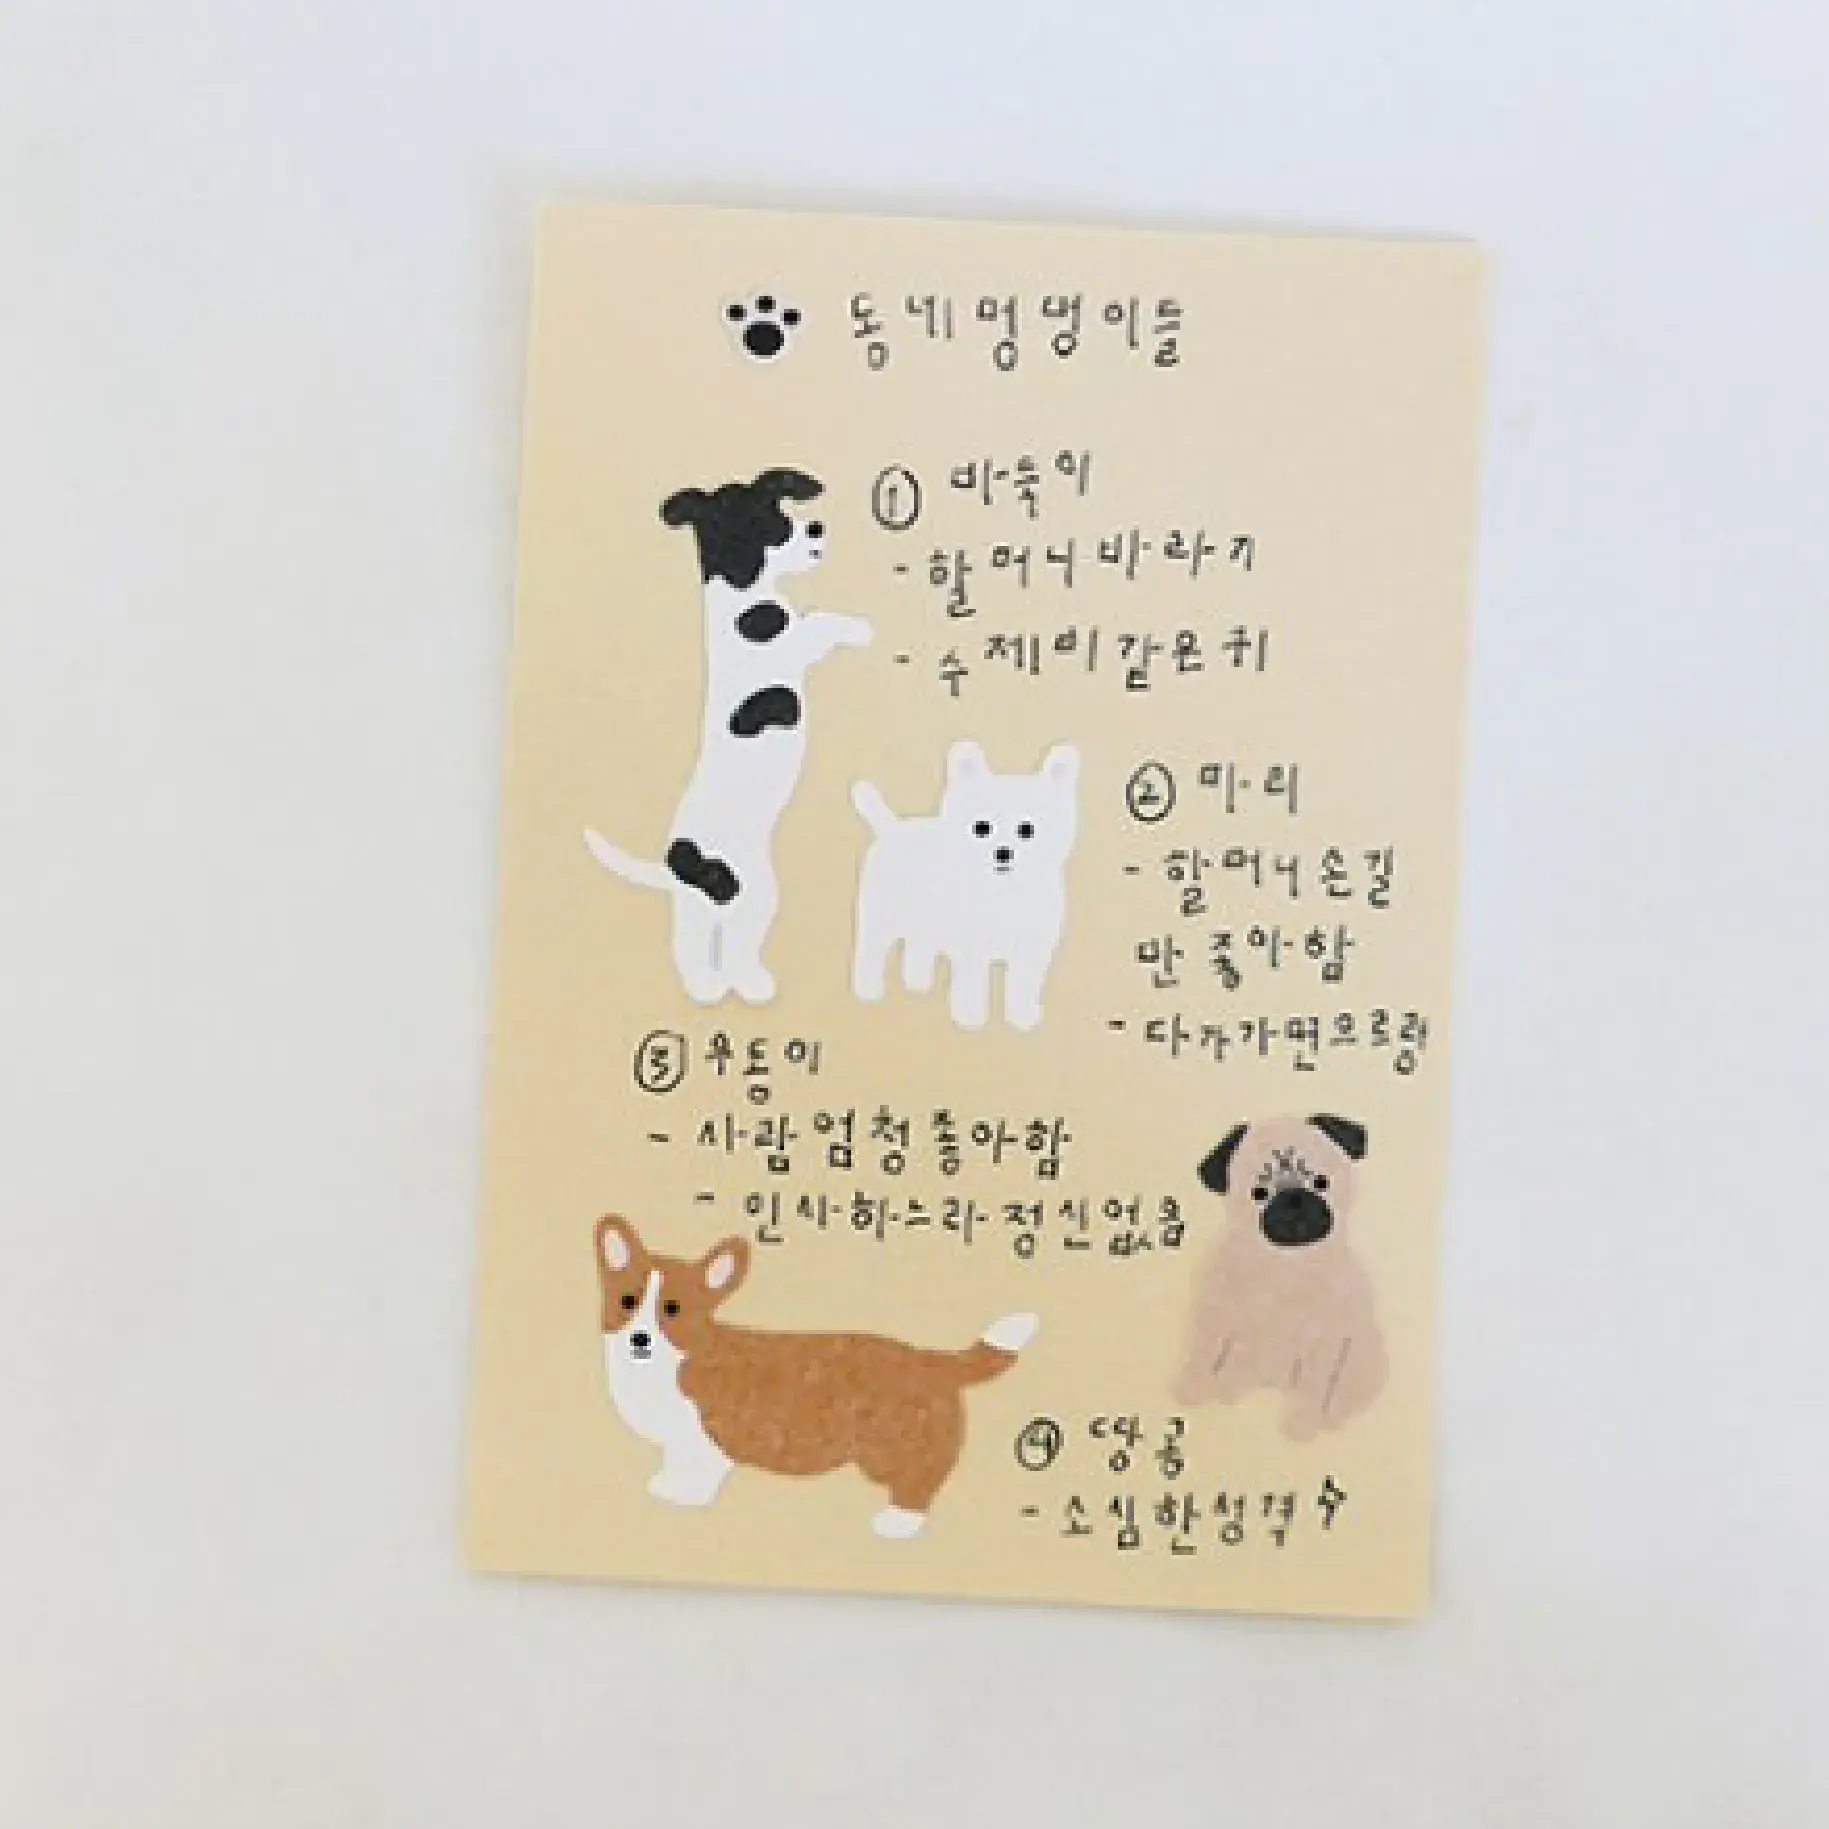 동네 멍냉이들
① 바둑이
- 할머니 바라기
- 수제비 같은 귀
② 마리
- 할머니 손길
만 좋아함
- 다가가면 으르렁
③ 우동이
- 사람 엄청 좋아함
- 인사하느라 정신없음
④ 땡콩
- 소심한 성격